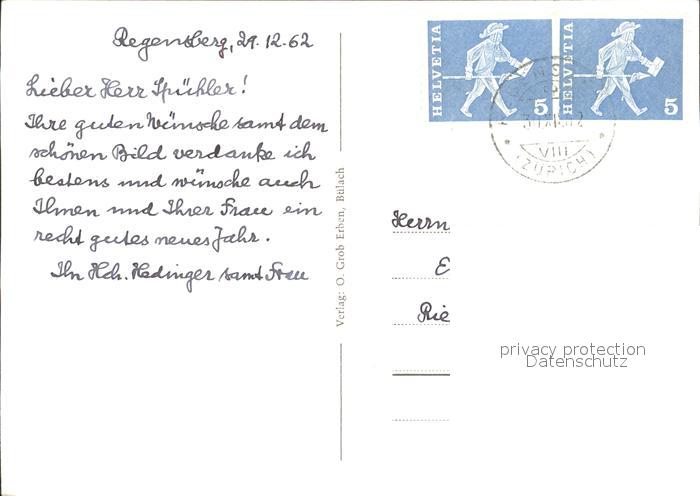 Regensberg, 29.12.62
Lieber Herr Spühler!
Ihre guten Wünsche samt dem
schönen Bild verdanke ich
bestens und wünsche auch
Ihnen und Ihrer Frau ein
recht gutes neues Jahr.
Ihr Hch. Hedinger samt Frau
Verlag: O. Grob Erben, Bülach
HELVETIA 5
HELVETIA 5
VIII
(ZÜRICH)
Herrn
E
Rie
privacy protection
Datenschutz